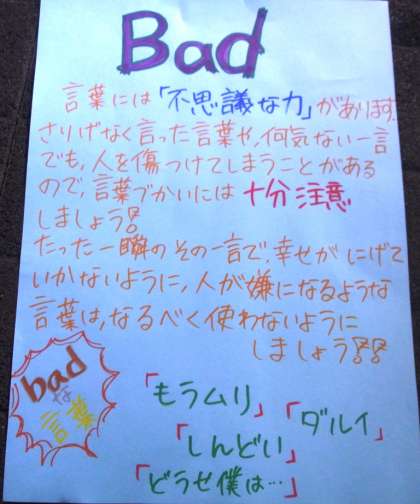 Bad
言葉には「不思議な力」があります。
さりげなく言った言葉や、何気ない一言
でも、人を傷つけてしまうことがある
ので、言葉づかいには十分注意
しましょう!!
たった一瞬のその一言で、幸せがにげて
いかないように、人が嫌になるような
言葉は、なるべく使わないように
しましょう!!!!
badな言葉
「もうムリ」
「ダルイ」
「しんどい」
「どうせ僕は…」